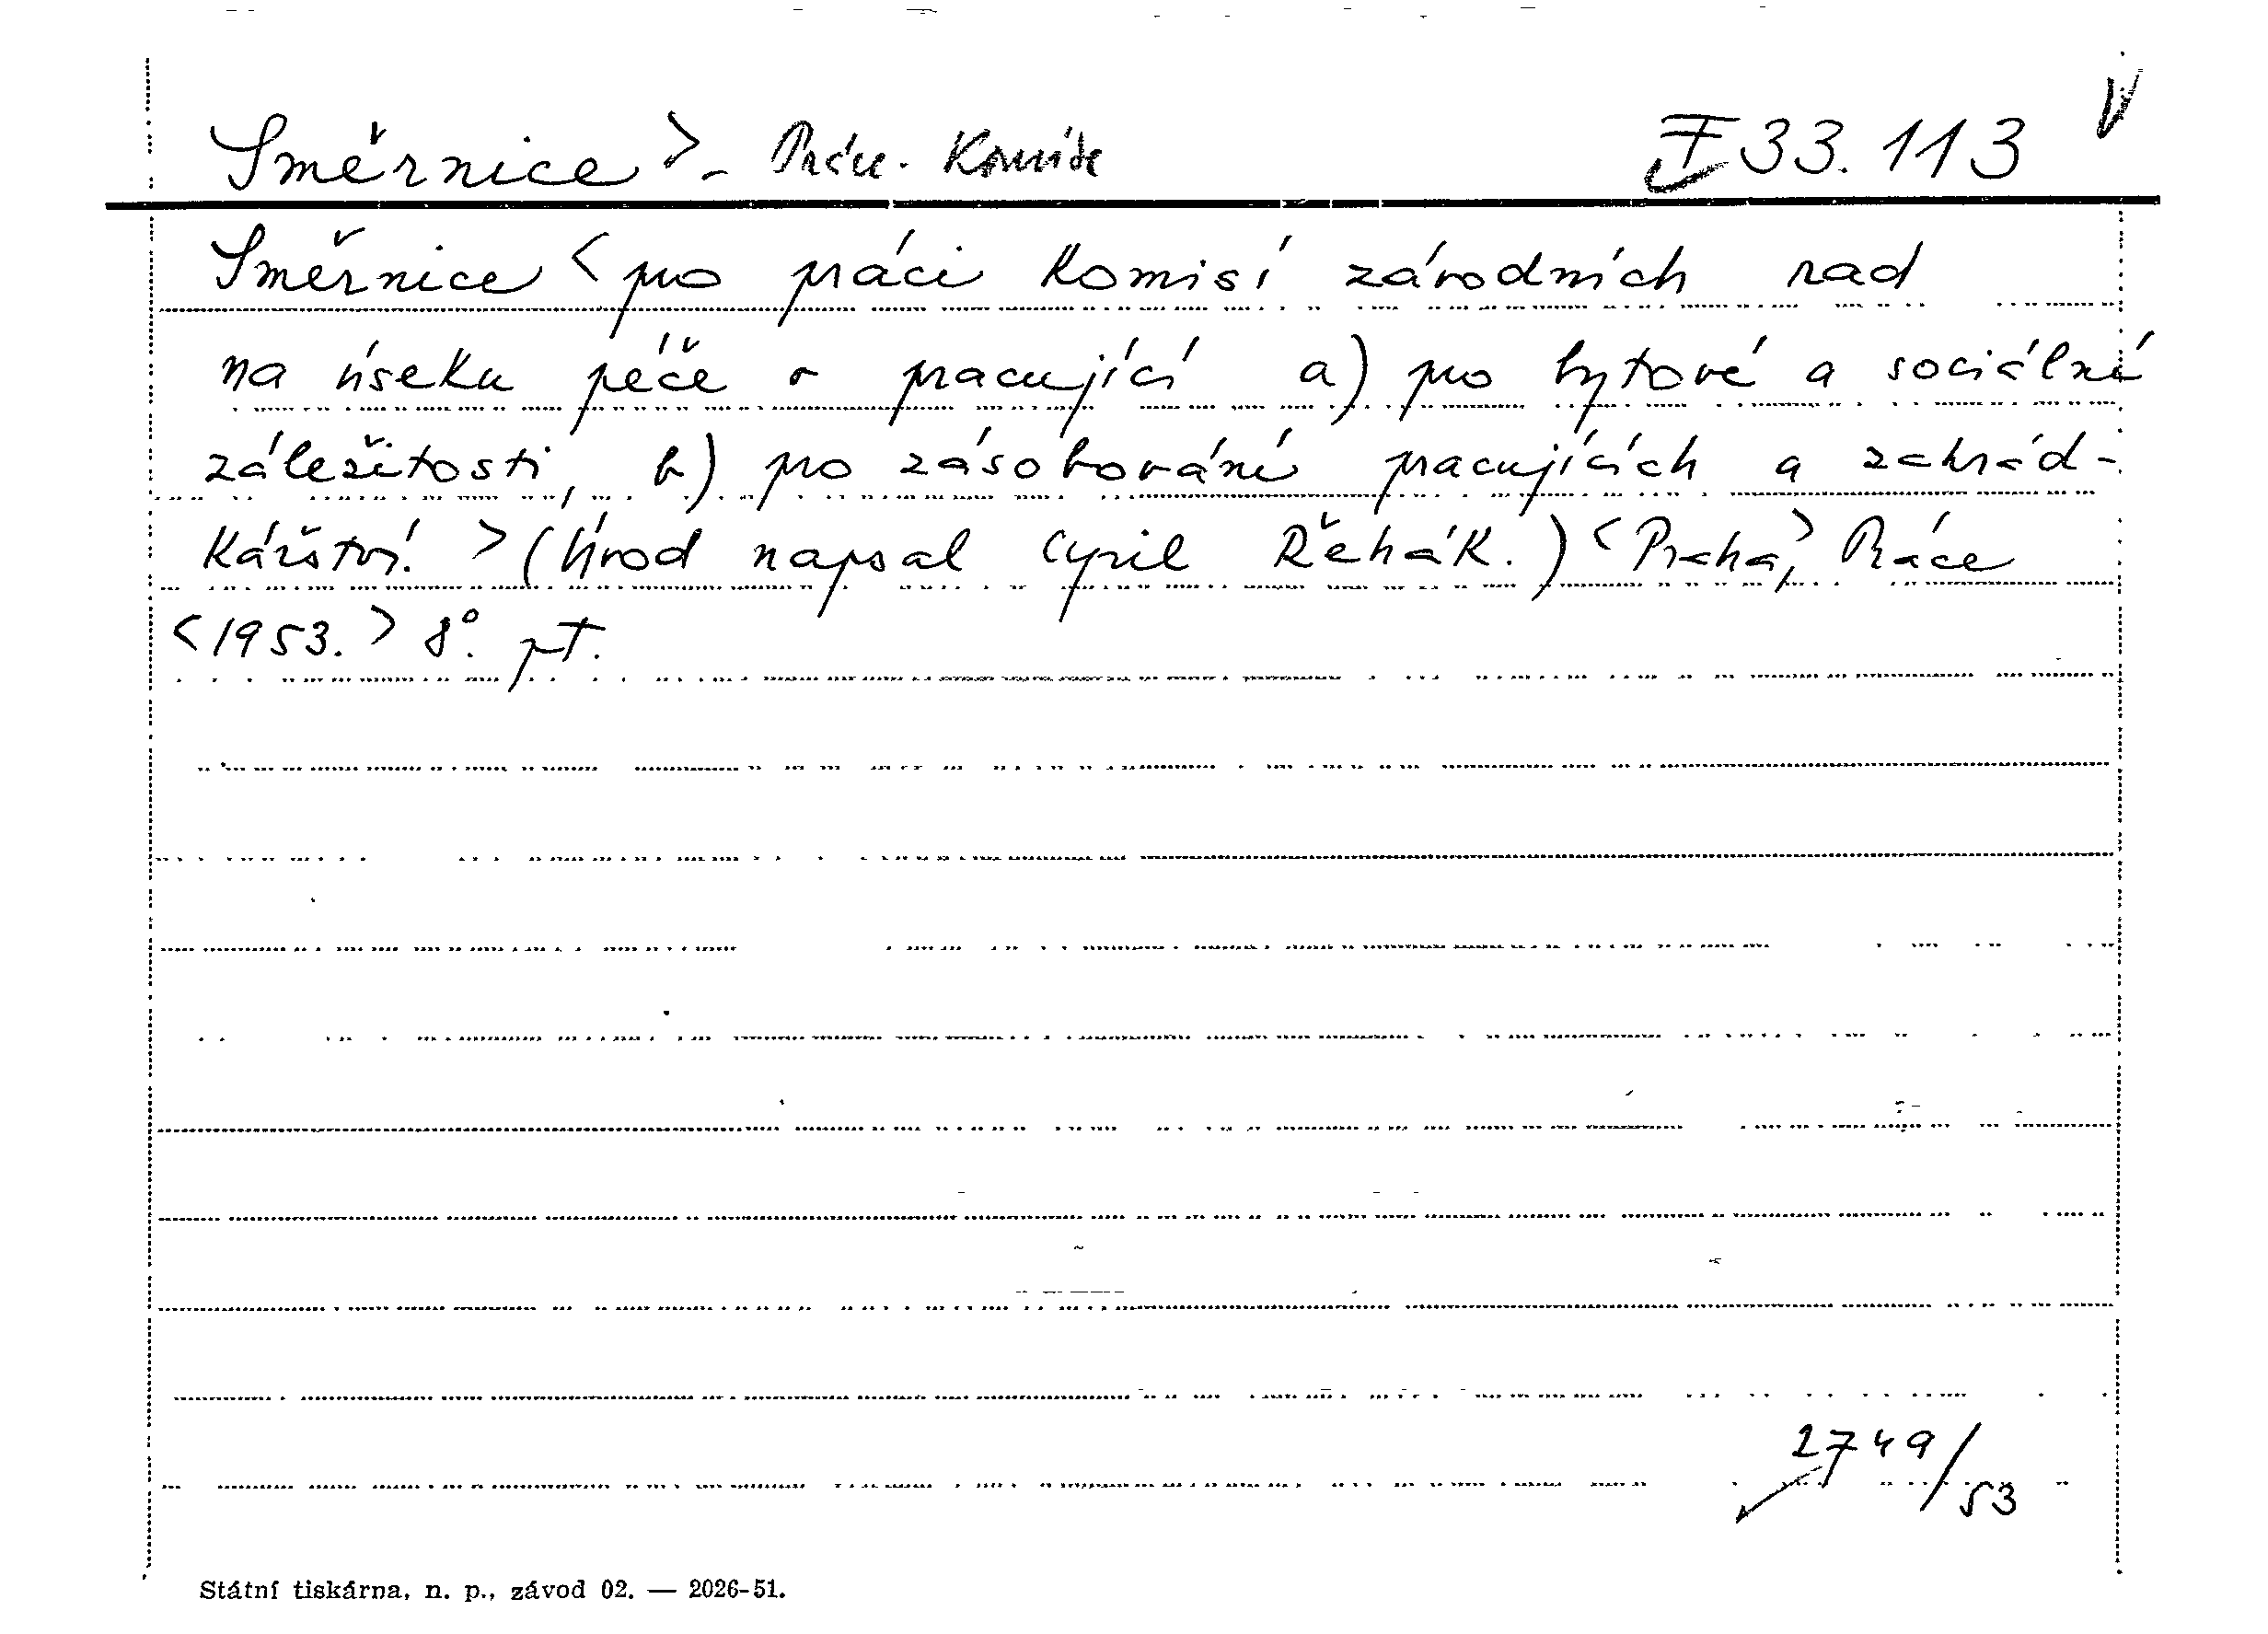 Směrnice > - Práce. Komise I 33.113 V
Směrnice < pro práci komisí závodních rad
na úseku péče o pracující a) pro bytové a sociální
záležitosti, b) pro zásobování pracujících a zahrád-
kářství. > (Úvod napsal Cyril Řehák.) < Praha, > Práce
< 1953. > 8°. pt.
2749/53
Státní tiskárna, n. p., závod 02. — 2026-51.